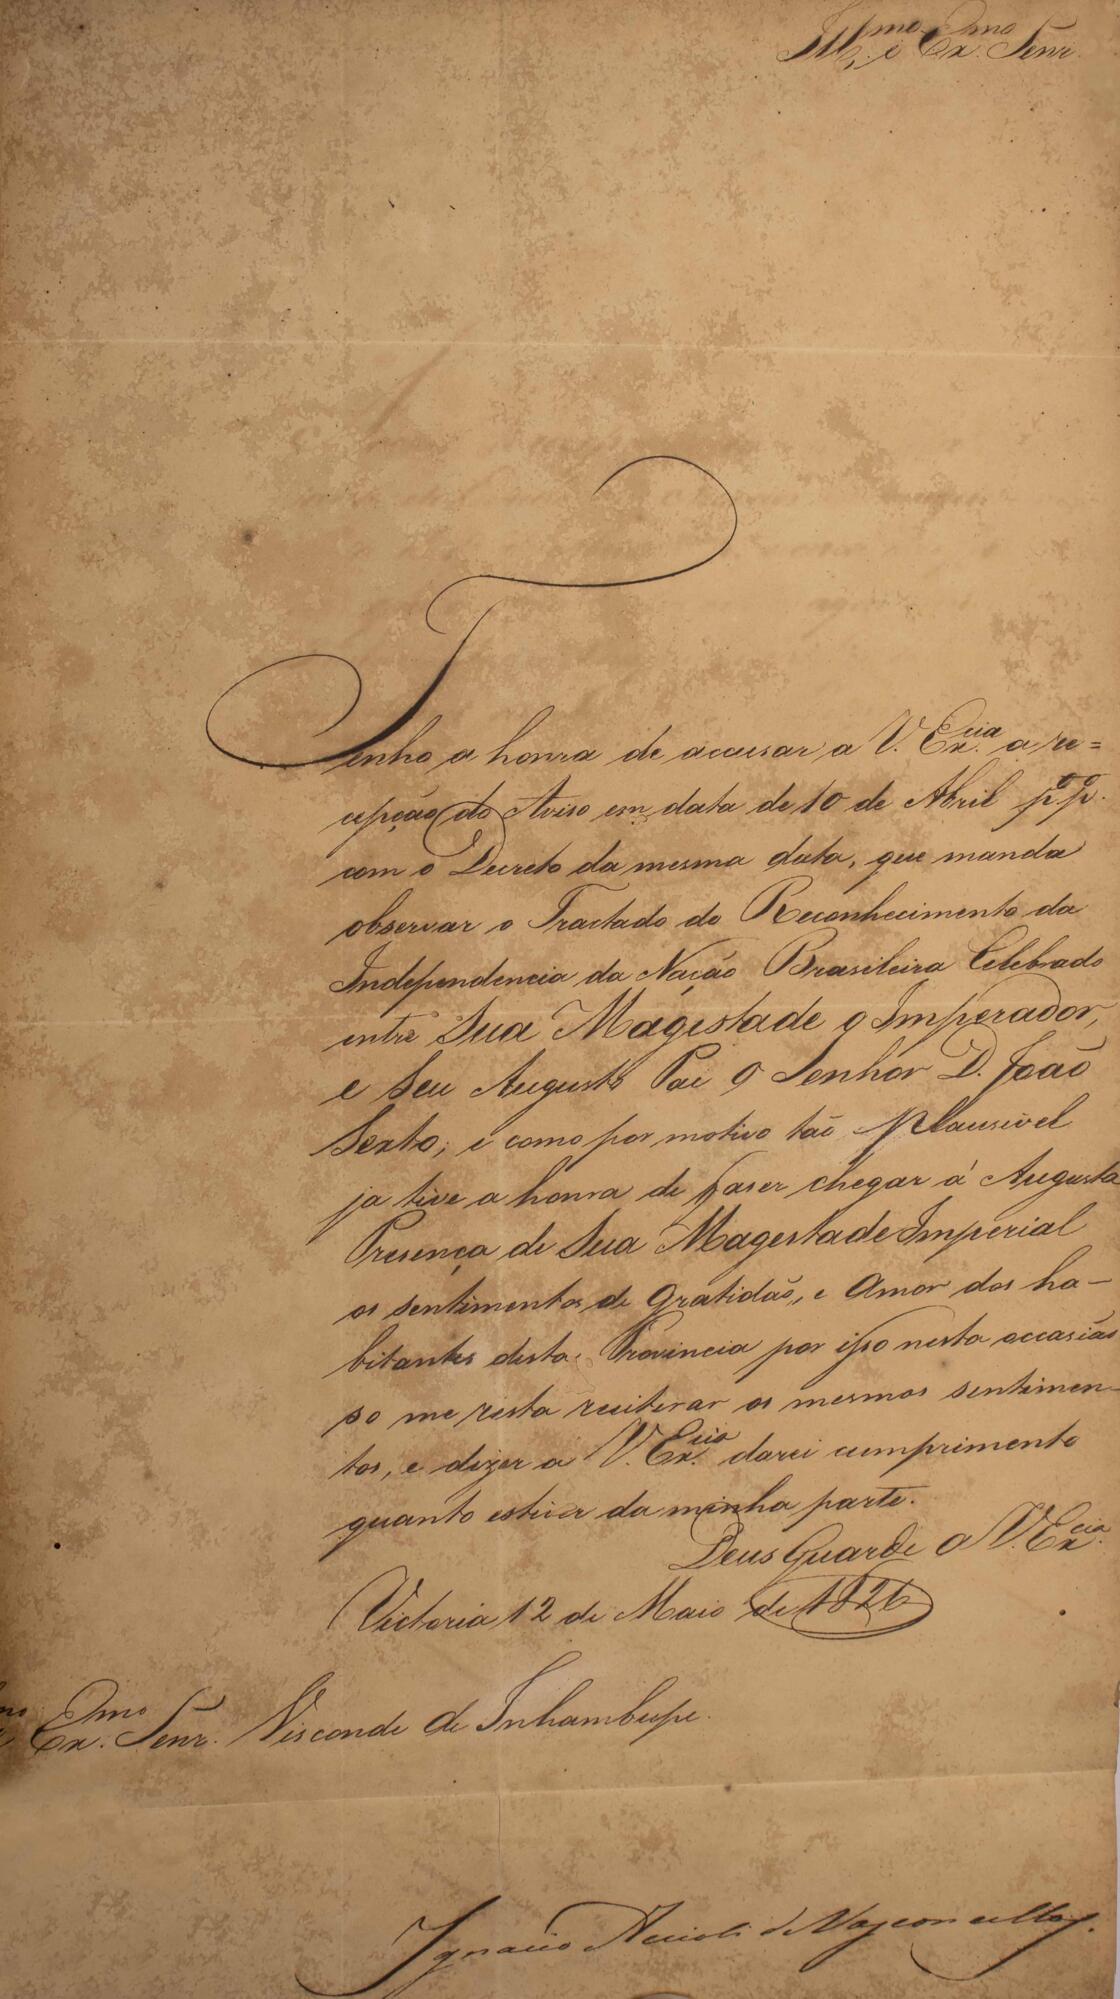 Ill.mo e Ex.mo Senr.
Tenho a honra de accusar a V. Ex.cia a re=
cepção do Aviso em data de 10 de Abril p.o p.o
com o Decreto da mesma data, que manda
observar o Tractado do Reconhecimento da
Independencia da Nação Brasileira Celebrado
entre Sua Magestade o Imperador,
e Seu Augusto Pai O Senhor D. João
Sexto; e como por motivo tão plausivel
ja tive a honra de faser chegar á Augusta
Presença de Sua Magestade Imperial
os sentimentos de Gratidão, e Amor dos ha-
bitantes desta Provincia por isso nesta occasião
so me resta reiterar os mesmos sentimen-
tos, e dizer a V. Ex.cia darei cumprimento
quanto estiver da minha parte.
Deus Guarde a V. Ex.cia
Victoria 12 de Maio de 1826
Ex.mo Senr. Visconde de Inhambupe.
Ignacio Accioli de Vasconcellos.